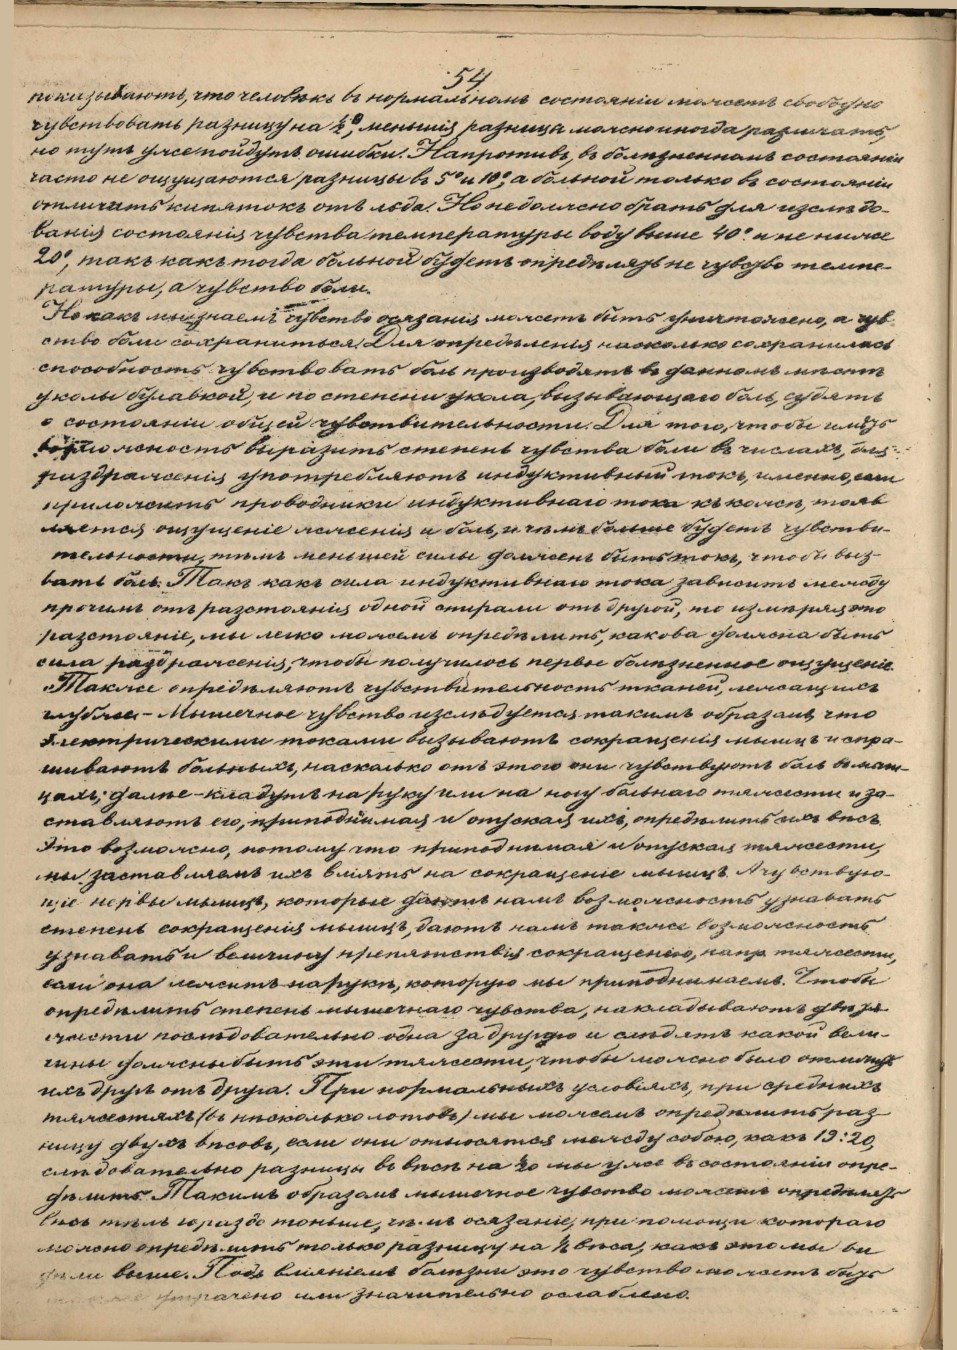 54
показываютъ, что человѣкъ въ нормальномъ состояніи можетъ свободно
чувствовать разницу на ½°, меньшія разницы можно иногда различать,
но тутъ уже пойдутъ ошибки. Напротивъ, въ болѣзненномъ состояніи
часто не ощущаются разницы въ 5° и 10°, а больной только въ состояніи
отличить кипятокъ отъ льда. Но не должно брать для изслѣдо-
ванія состоянія чувства температуры воду выше 40° и не ниже
20°, такъ какъ тогда больной будетъ опредѣлять не чувство темпе-
ратуры, а чувство боли.
Но какъ мы знаемъ чувство осязанія можетъ быть уничтожено, а чув-
ство боли сохраниться. Для опредѣленія насколько сохранилась
способность чувствовать боль производятъ въ данномъ мѣстѣ
уколы булавкой, и по степени укола, вызывающаго боль, судятъ
о состояніи общей чувствительности. Для того, чтобы имѣть
возможность выразить степень чувства боли въ числахъ, для
раздраженія употребляютъ индуктивный токъ, именно, если
приложить проводники индуктивнаго тока къ кожѣ, появ
ляется ощущеніе жженія и боль, и чѣмъ больше будетъ чувстви-
тельность, тѣмъ меньшей силы долженъ быть токъ, чтобы выз-
вать боль. Такъ какъ сила индуктивнаго тока зависитъ между
прочимъ отъ разстоянія одной спирали отъ другой, то измѣряя это
разстояніе, мы легко можемъ опредѣлить, какова должна быть
сила раздраженія, чтобы получилось первое болѣзненное ощущеніе.
Также опредѣляютъ чувствительность тканей, лежащихъ
глубже – Мышечное чувство изслѣдуется такимъ образомъ, что
электрическими токами вызываютъ сокращенія мышцъ и спра-
шиваютъ больныхъ, насколько отъ этого они чувствуютъ боль въ мыш-
цахъ; далѣе – кладутъ на руку или на ногу больнаго тяжести и за-
ставляютъ его, приподнимая и опуская ихъ, опредѣлить ихъ вѣсъ.
Это возможно, потому что приподнимая и опуская тяжести,
мы заставляемъ ихъ вліять на сокращеніе мышцъ. А чувствую-
щіе нервы мышцъ, которые даютъ намъ возможность узнавать
степень сокращенія мышцъ, даютъ намъ также возможность
узнавать и величину препятствія сокращенію, напр. тяжести,
если она лежитъ на рукѣ, которую мы приподнимаемъ. Чтобы
опредѣлить степень мышечнаго чувства, накладываютъ двѣ тя
жести послѣдовательно одна за другую и слѣдятъ какой вели-
чины должны быть эти тяжести, чтобы можно было отличить
ихъ другъ отъ друга. При нормальныхъ условіяхъ, при среднихъ
тяжестяхъ (въ нѣсколько лотовъ) мы можемъ опредѣлить раз-
ницу двухъ вѣсовъ, если они относятся между собою, какъ 19:20,
слѣдовательно разницы въ вѣсѣ на 1/20 мы уже въ состояніи опре-
дѣлить. Такимъ образомъ мышечное чувство можетъ опредѣлять
вѣсъ тѣлъ гораздо тоньше, чѣмъ осязаніе, при помощи котораго
можно опредѣлить только разницу на ⅓ вѣса, какъ это мы ви
дѣли выше. Подъ вліяніемъ болѣзни это чувство можетъ быть
утрачено или значительно ослаблено.